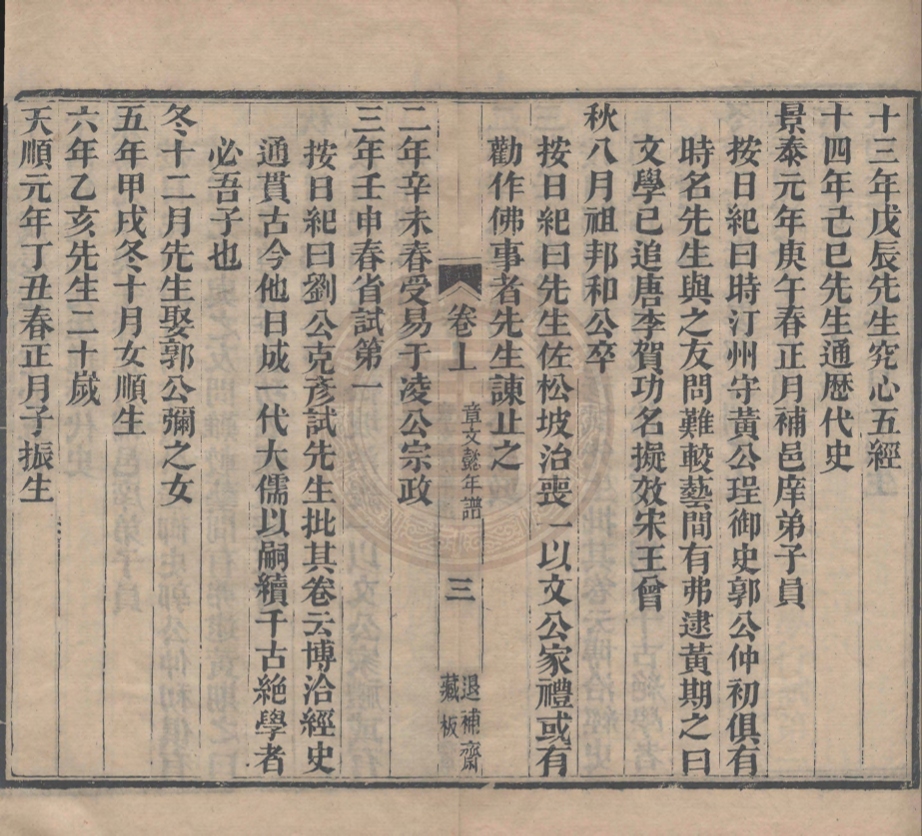 十三年戊辰先生究心五經
十四年己巳先生通歴代史
景泰元年庚午春正月補邑庠弟子員
按日紀曰時汀州守黃公珵御史郭公仲初俱有
時名先生與之友問難較藝間有弗逮黃期之曰
文學已追唐李賀功名擬效宋王曾
秋八月祖邦和公卒
按日紀曰先生佐松坡治喪一以文公家禮或有
勸作佛事者先生諫止之
卷上
章文懿年譜
三
退補齋
藏板
二年辛未春受易于凌公宗政
三年壬申春省試第一
按日紀曰劉公克彥試先生批其卷云博洽經史
通貫古今他日成一代大儒以嗣續千古絕學者
必吾子也
冬十二月先生娶郭公彌之女
五年甲戌冬十月女順生
六年乙亥先生二十歲
天順元年丁丑春正月子振生